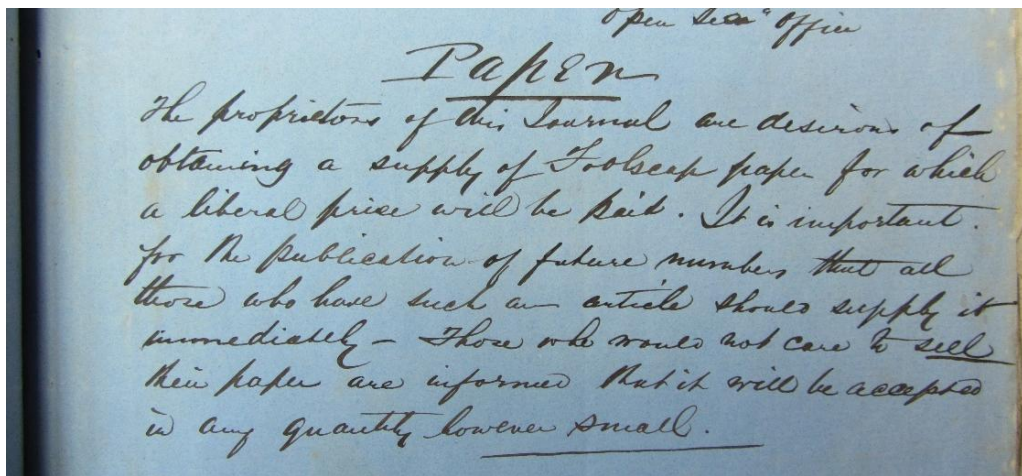 Open Sea" Office
PAPER
The proprietors of this Journal are desirous of
obtaining a supply of Foolscap paper for which
a liberal price will be paid. It is important.
for the publication of future numbers that all
those who have such an article should supply it
immediately - Those who would not care to sell
their paper are informed that it will be accepted
in any quantity however small.